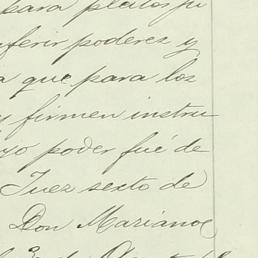 para pleitos ju
nferir poderes y
a que para los
y firmen instru
uyo poder fué de
Juez sexto de
Don Mariano